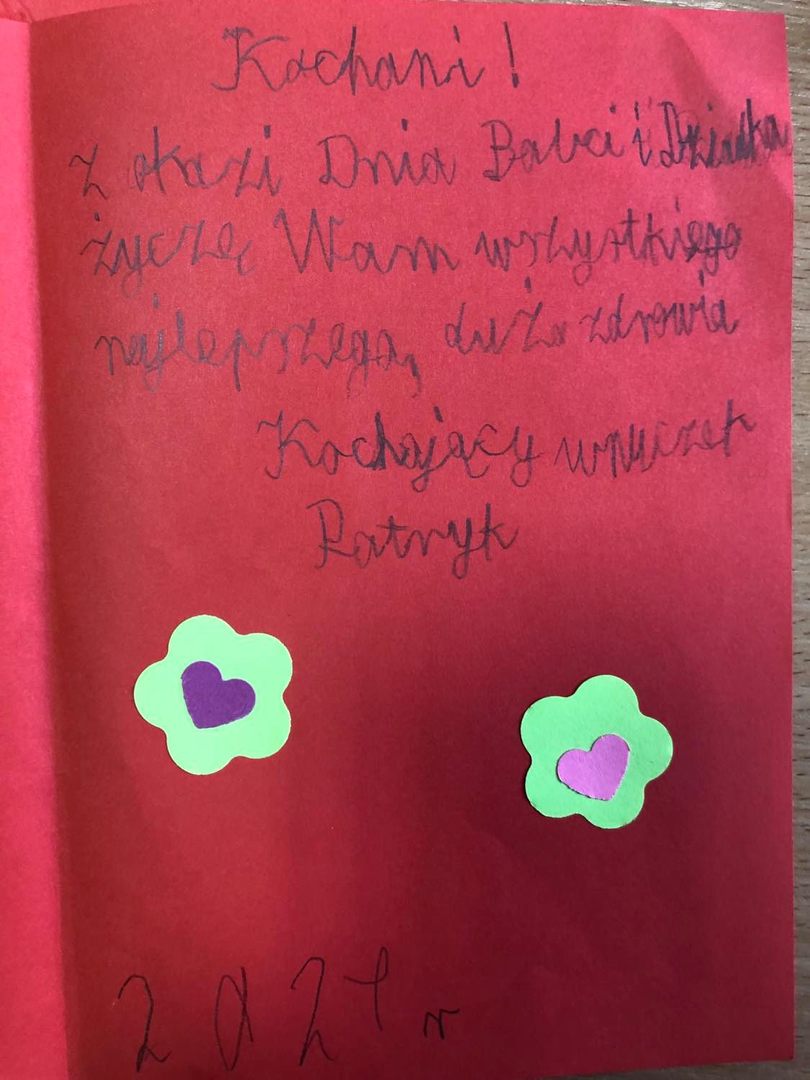 Kochani!
Z okazji Dnia Babci i Dziadka
życzę Wam wszystkiego
najlepszego, dużo zdrowia
Kochający wnuczek
Patryk
2021 r